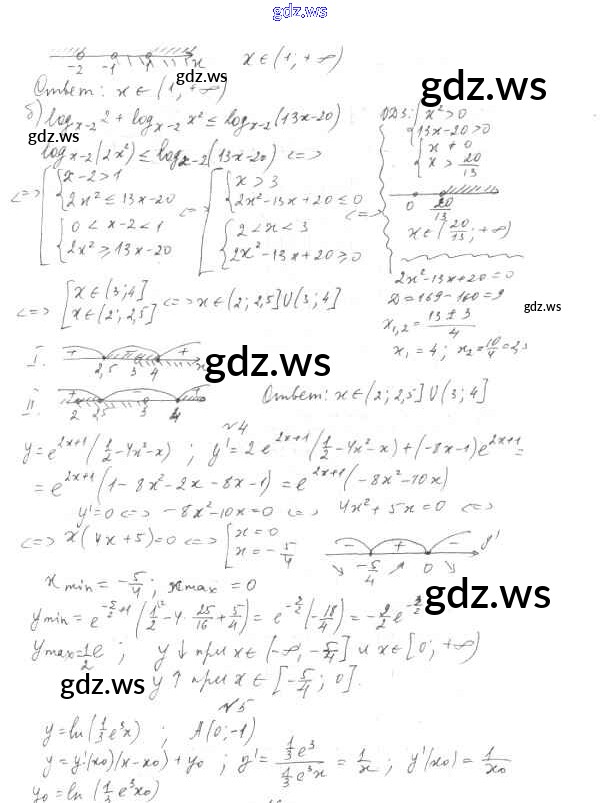 gdz.ws
-2 -1 1 x x ∈ (1; +∞)
gdz.ws
Ответ: x ∈ (1; +∞)
gdz.ws
б) log_{x-2} 2 + log_{x-2} x² ≤ log_{x-2}(13x-20) ОДЗ: { x² > 0
gdz.ws
13x-20 > 0
log_{x-2}(2x²) ≤ log_{x-2}(13x-20) <=> { x ≠ 0
x > 20/13
<=> [ { x-2 > 1 <=> [ { x > 3 <=>
2x² ≤ 13x-20 2x²-13x+20 ≤ 0
0 20/13
{ 0 < x-2 < 1 { 2 < x < 3
x ∈ (20/13; +∞)
2x² ≥ 13x-20 2x²-13x+20 ≥ 0
2x²-13x+20=0
<=> [ x ∈ (3; 4] <=> x ∈ (2; 2,5] ∪ (3; 4]
x ∈ (2; 2,5]
D = 169-160 = 9
gdz.ws
x_{1,2} = (13±3)/4
x₁ = 4; x₂ = 10/4 = 2,5
I. + - + 2,5 3 4 x
gdz.ws
II. + - + 2 2,5 3 4
Ответ: x ∈ (2; 2,5] ∪ (3; 4]
№4
y = e^{2x+1}(1/2-4x²-x); y' = 2e^{2x+1}(1/2-4x²-x)+(-8x-1)e^{2x+1} =
= e^{2x+1}(1-8x²-2x-8x-1) = e^{2x+1}(-8x²-10x)
y'=0 <=> -8x²-10x=0 <=> 4x²+5x=0 <=>
<=> x(4x+5)=0 <=> [ x=0
x=-5/4
- + - y'
-5/4 0
x min = -5/4; x max = 0
gdz.ws
y min = e^{-5/2+1}(1/2-4·25/16+5/4) = e^{-3/2}(-18/4) = -9/2 e^{-3/2}
y max = 1/2 e; y ↓ при x ∈ (-∞, -5/4] и x ∈ [0; +∞)
gdz.ws
y ↑ при x ∈ [-5/4; 0].
gdz.ws
№5
y = ln(1/3 e³x); A(0;-1)
y = y'(x₀)(x-x₀)+y₀; y' = (1/3 e³)/(1/3 e³x) = 1/x; y'(x₀) = 1/x₀
y₀ = ln(1/3 e³x₀)